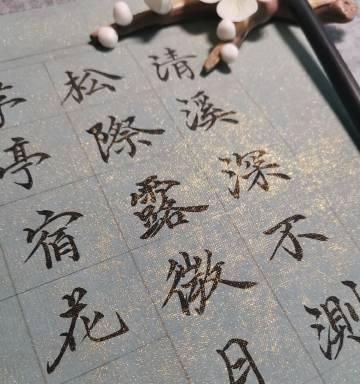 清溪深不測
松際露微月
亭宿花